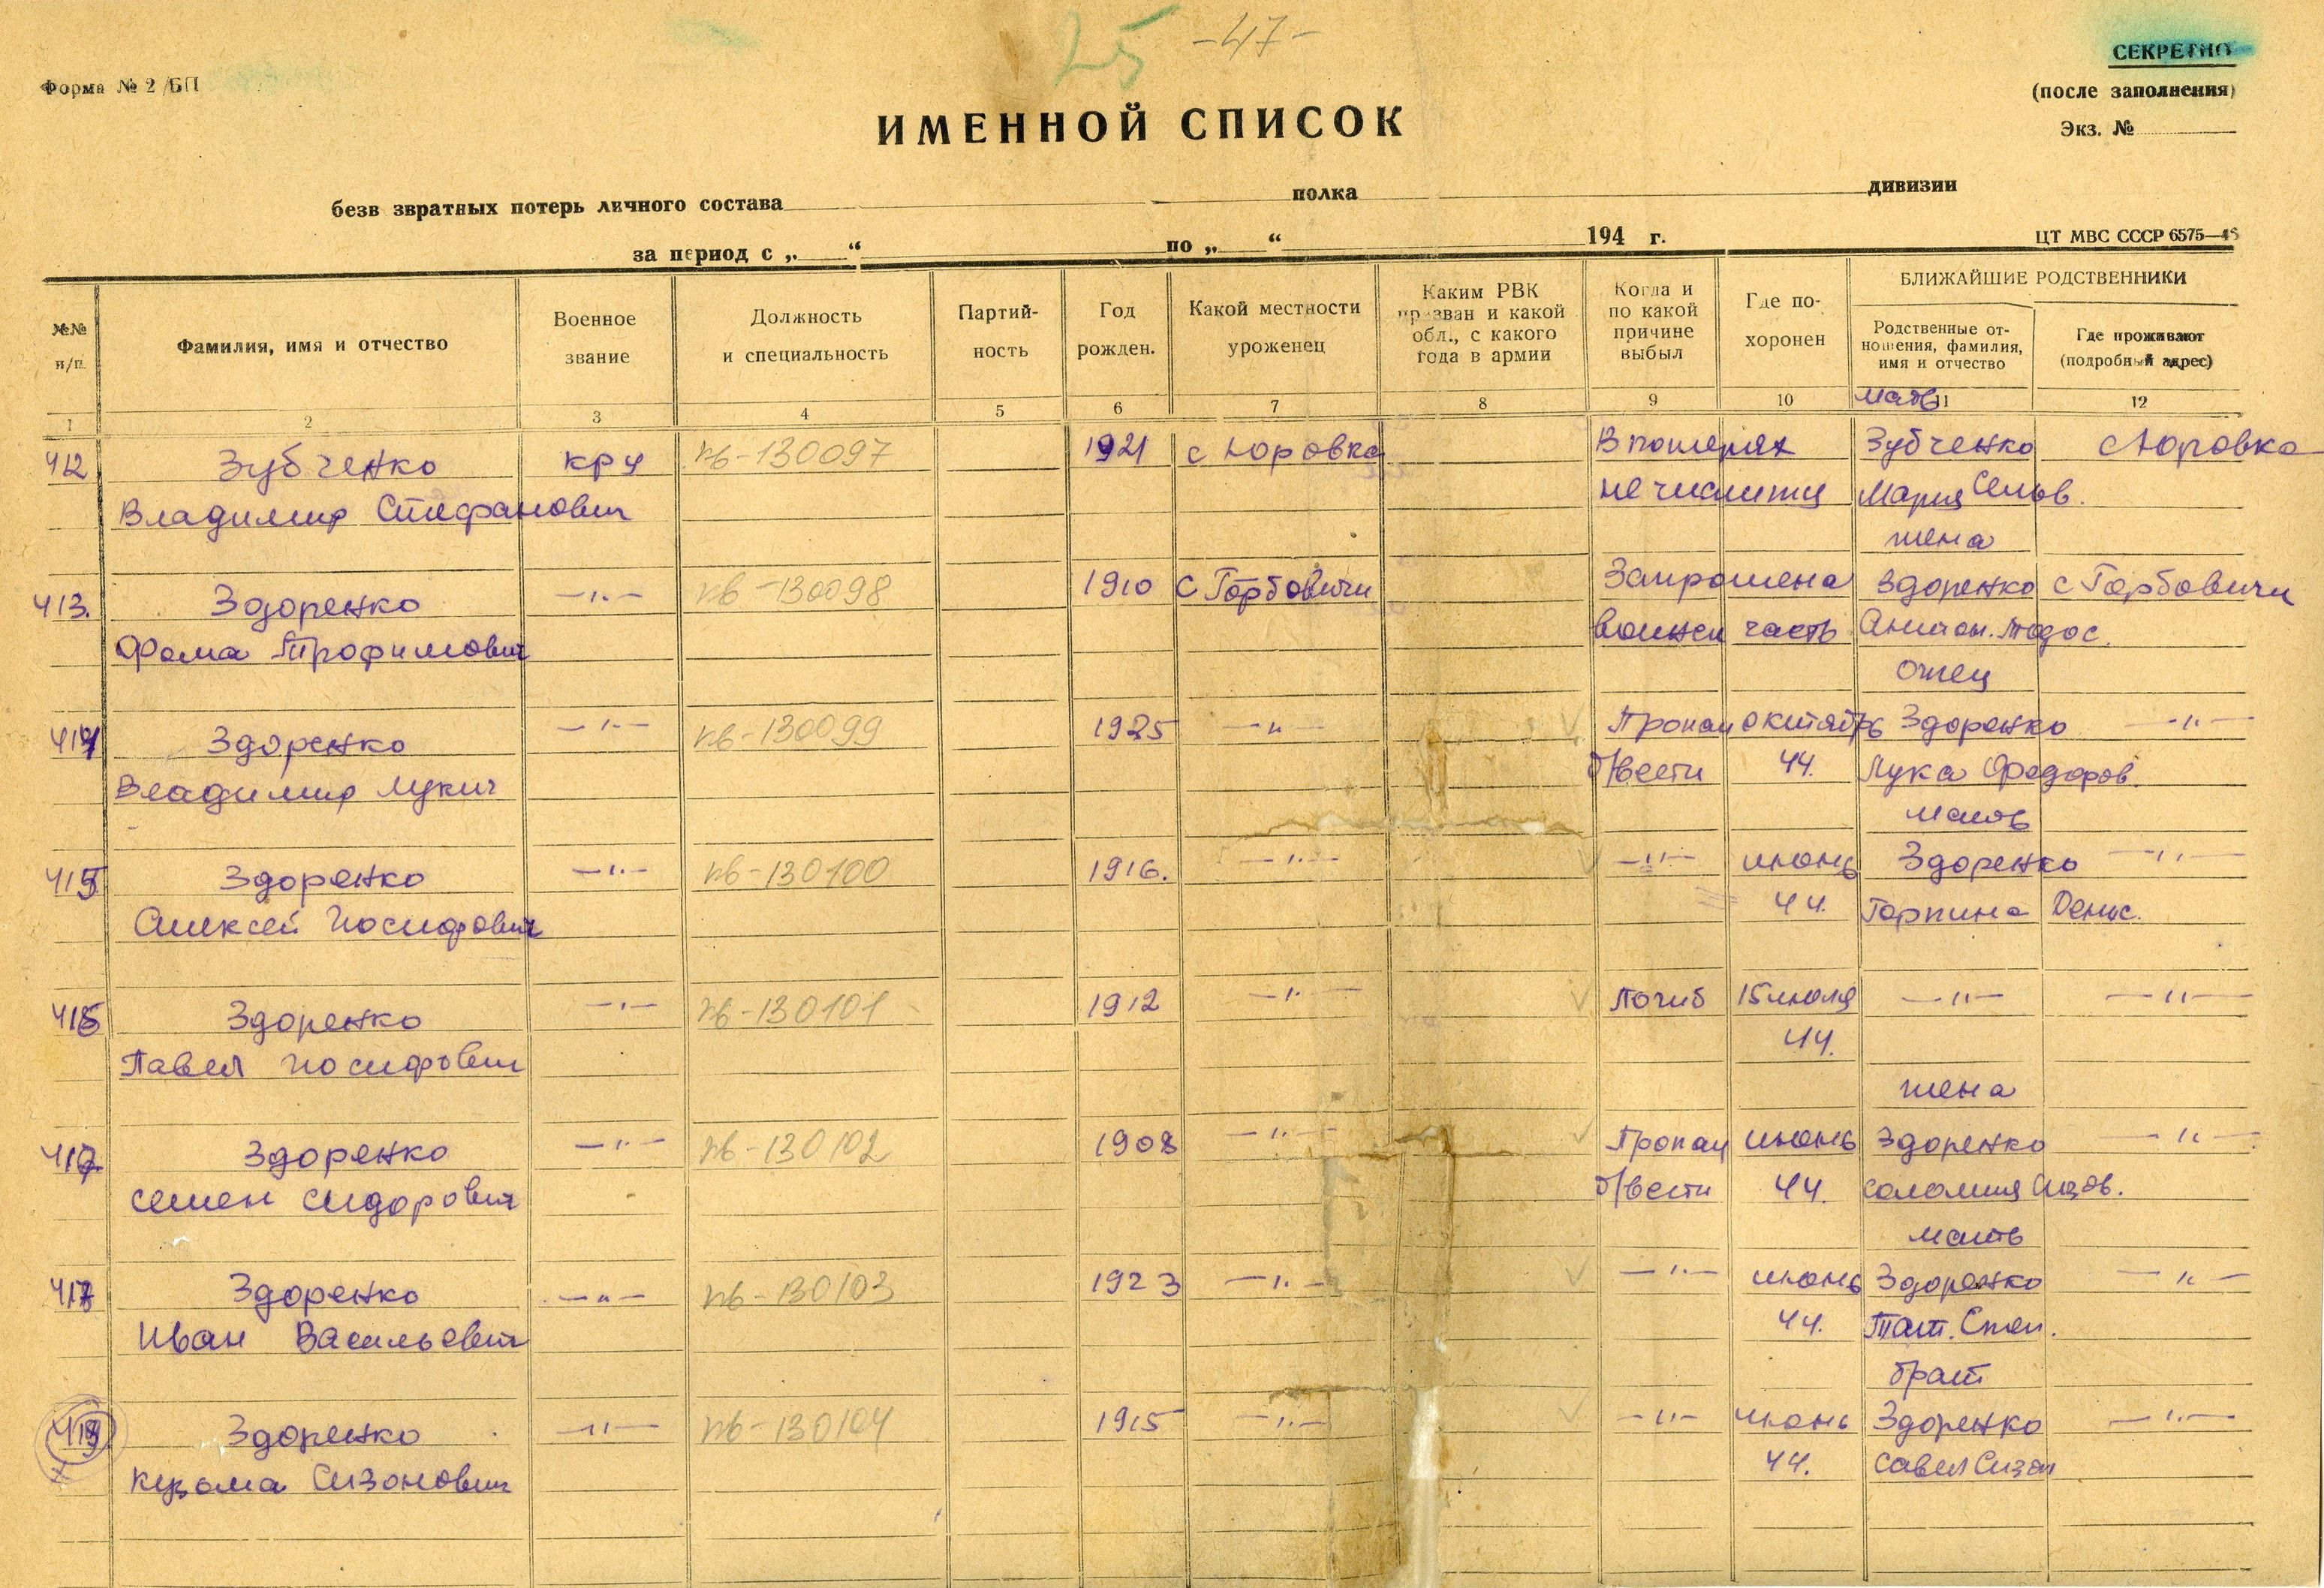 25 -47-
СЕКРЕТНО
Форма № 2/БП
(после заполнения)
ИМЕННОЙ СПИСОК
Экз. №
безв звратных потерь личного состава полка дивизии
за период с „ “ по „ “ 194 г.
ЦТ МВС СССР 6575—46
№№ п/п
Фамилия, имя и отчество
Военное звание
Должность и специальность
Партий-
ность
Год рожден.
Какой местности уроженец
Каким РВК
призван и какой
обл., с какого
года в армии
Когда и
по какой
причине
выбыл
Где по-
хоронен
БЛИЖАЙШИЕ РОДСТВЕННИКИ
Родственные от-
ношения, фамилия,
имя и отчество
Где проживают
(подробный адрес)
1 2 3 4 5 6 7 8 9 10 11 12
мать
412 Зубченко кру пв-130097 1921 с Юровка В потерях Зубченко с Юровка
Владимир Стефанович не числится Мария
жена
413. Здоренко —"— пв-130098 1910 с Горбовичи Запрошена Здоренко с Горбовичи
Фома Трофимович воинск часть Антон. Тодос.
отец
414 Здоренко —"— пв-130099 1925 —"— Пропал октябрь Здоренко —"—
Владимир Лукич б/вести 44. Лука Федоров.
мать
415 Здоренко —"— пв-130100 1916. —"— —"— июнь Здоренко —"—
Алексей Иосифович 44. Горпина Денис.
416 Здоренко —"— пв-130101 1912 —"— Погиб 15 июля —"— —"—
Павел Иосифович 44.
жена
417 Здоренко —"— пв-130102 1908 —"— Пропал июнь Здоренко —"—
Семен Сидорович б/вести 44. Соломия
мать
417 Здоренко —"— пв-130103 1923 —"— —"— июнь Здоренко —"—
Иван Васильевич 44. Тат. Степ.
брат
418 Здоренко —"— пв-130104 1915 —"— —"— июнь Здоренко —"—
Кузьма Сизонович 44. Савел Сизон